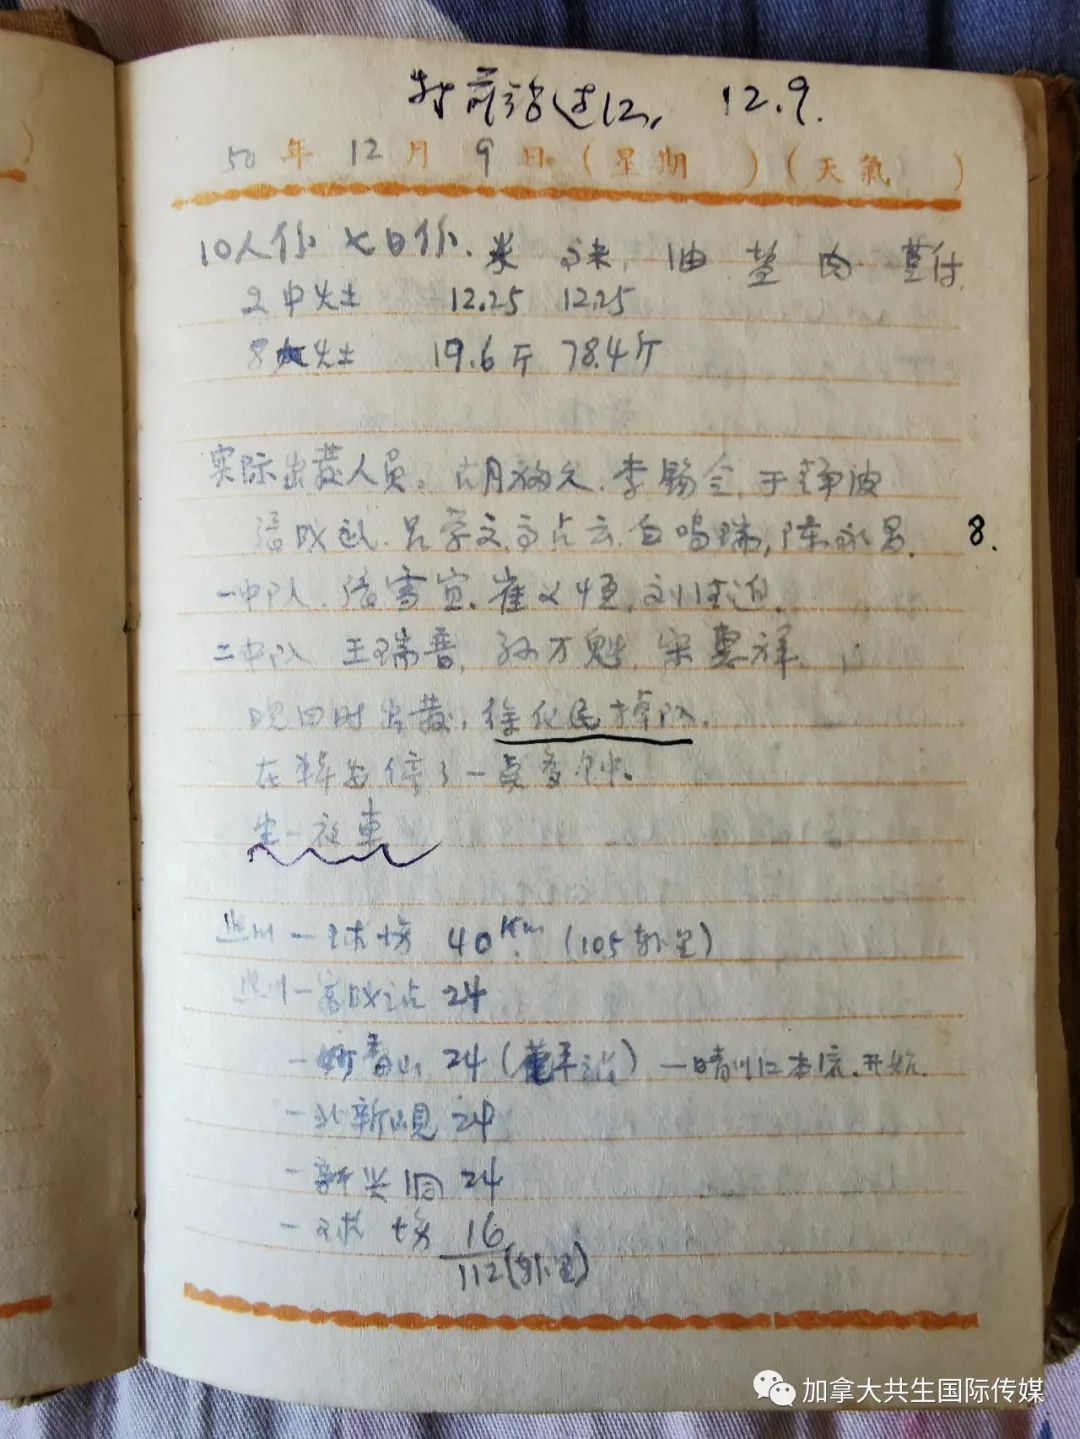 打前站过江, 12.9.
50年12月9日(星期 )(天氣 )
10人份 七日份. 米 油 肉
2中灶 12.25 12.25
8大灶 19.6斤 78.4斤
实际出发人员: 李锡 于静波
吕学文, 高占云, 白鸣瑞, 陈永昌. 8.
一中队. 雪宣. 崔义恒.
二中队 王瑞晋, 孙万魁, 宋惠祥.
晚四时出发, 徐化民掉队.
在 停了一点多钟.
坐一夜車
熙川—球场 40Km. (105 里)
熙川— 站 24
—妙香山 24 ( 站) —晴川江 开始.
—北新峴 24
—新兴洞 24
—球场 16
112( 里)
加拿大共生国际传媒